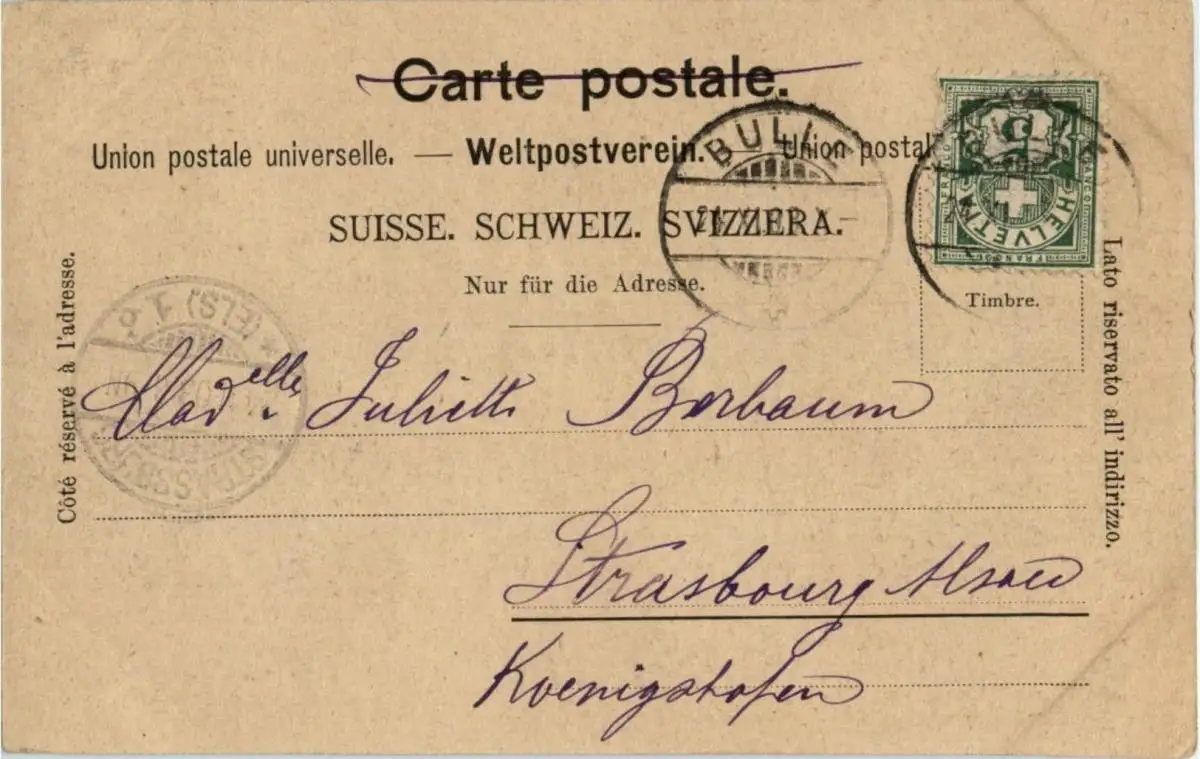 Carte postale.
Union postale universelle. — Weltpostverein. — Union postal
SUISSE. SCHWEIZ. SVIZZERA.
Nur für die Adresse.
BULLE
5
HELVETIA
FRANCO
Timbre.
Côté réservé à l'adresse.
Lato riservato all' indirizzo.
STRASSBURG
(ELS)
Madelle Juliette Berbaum
Strasbourg Alsace
Koenigshofen